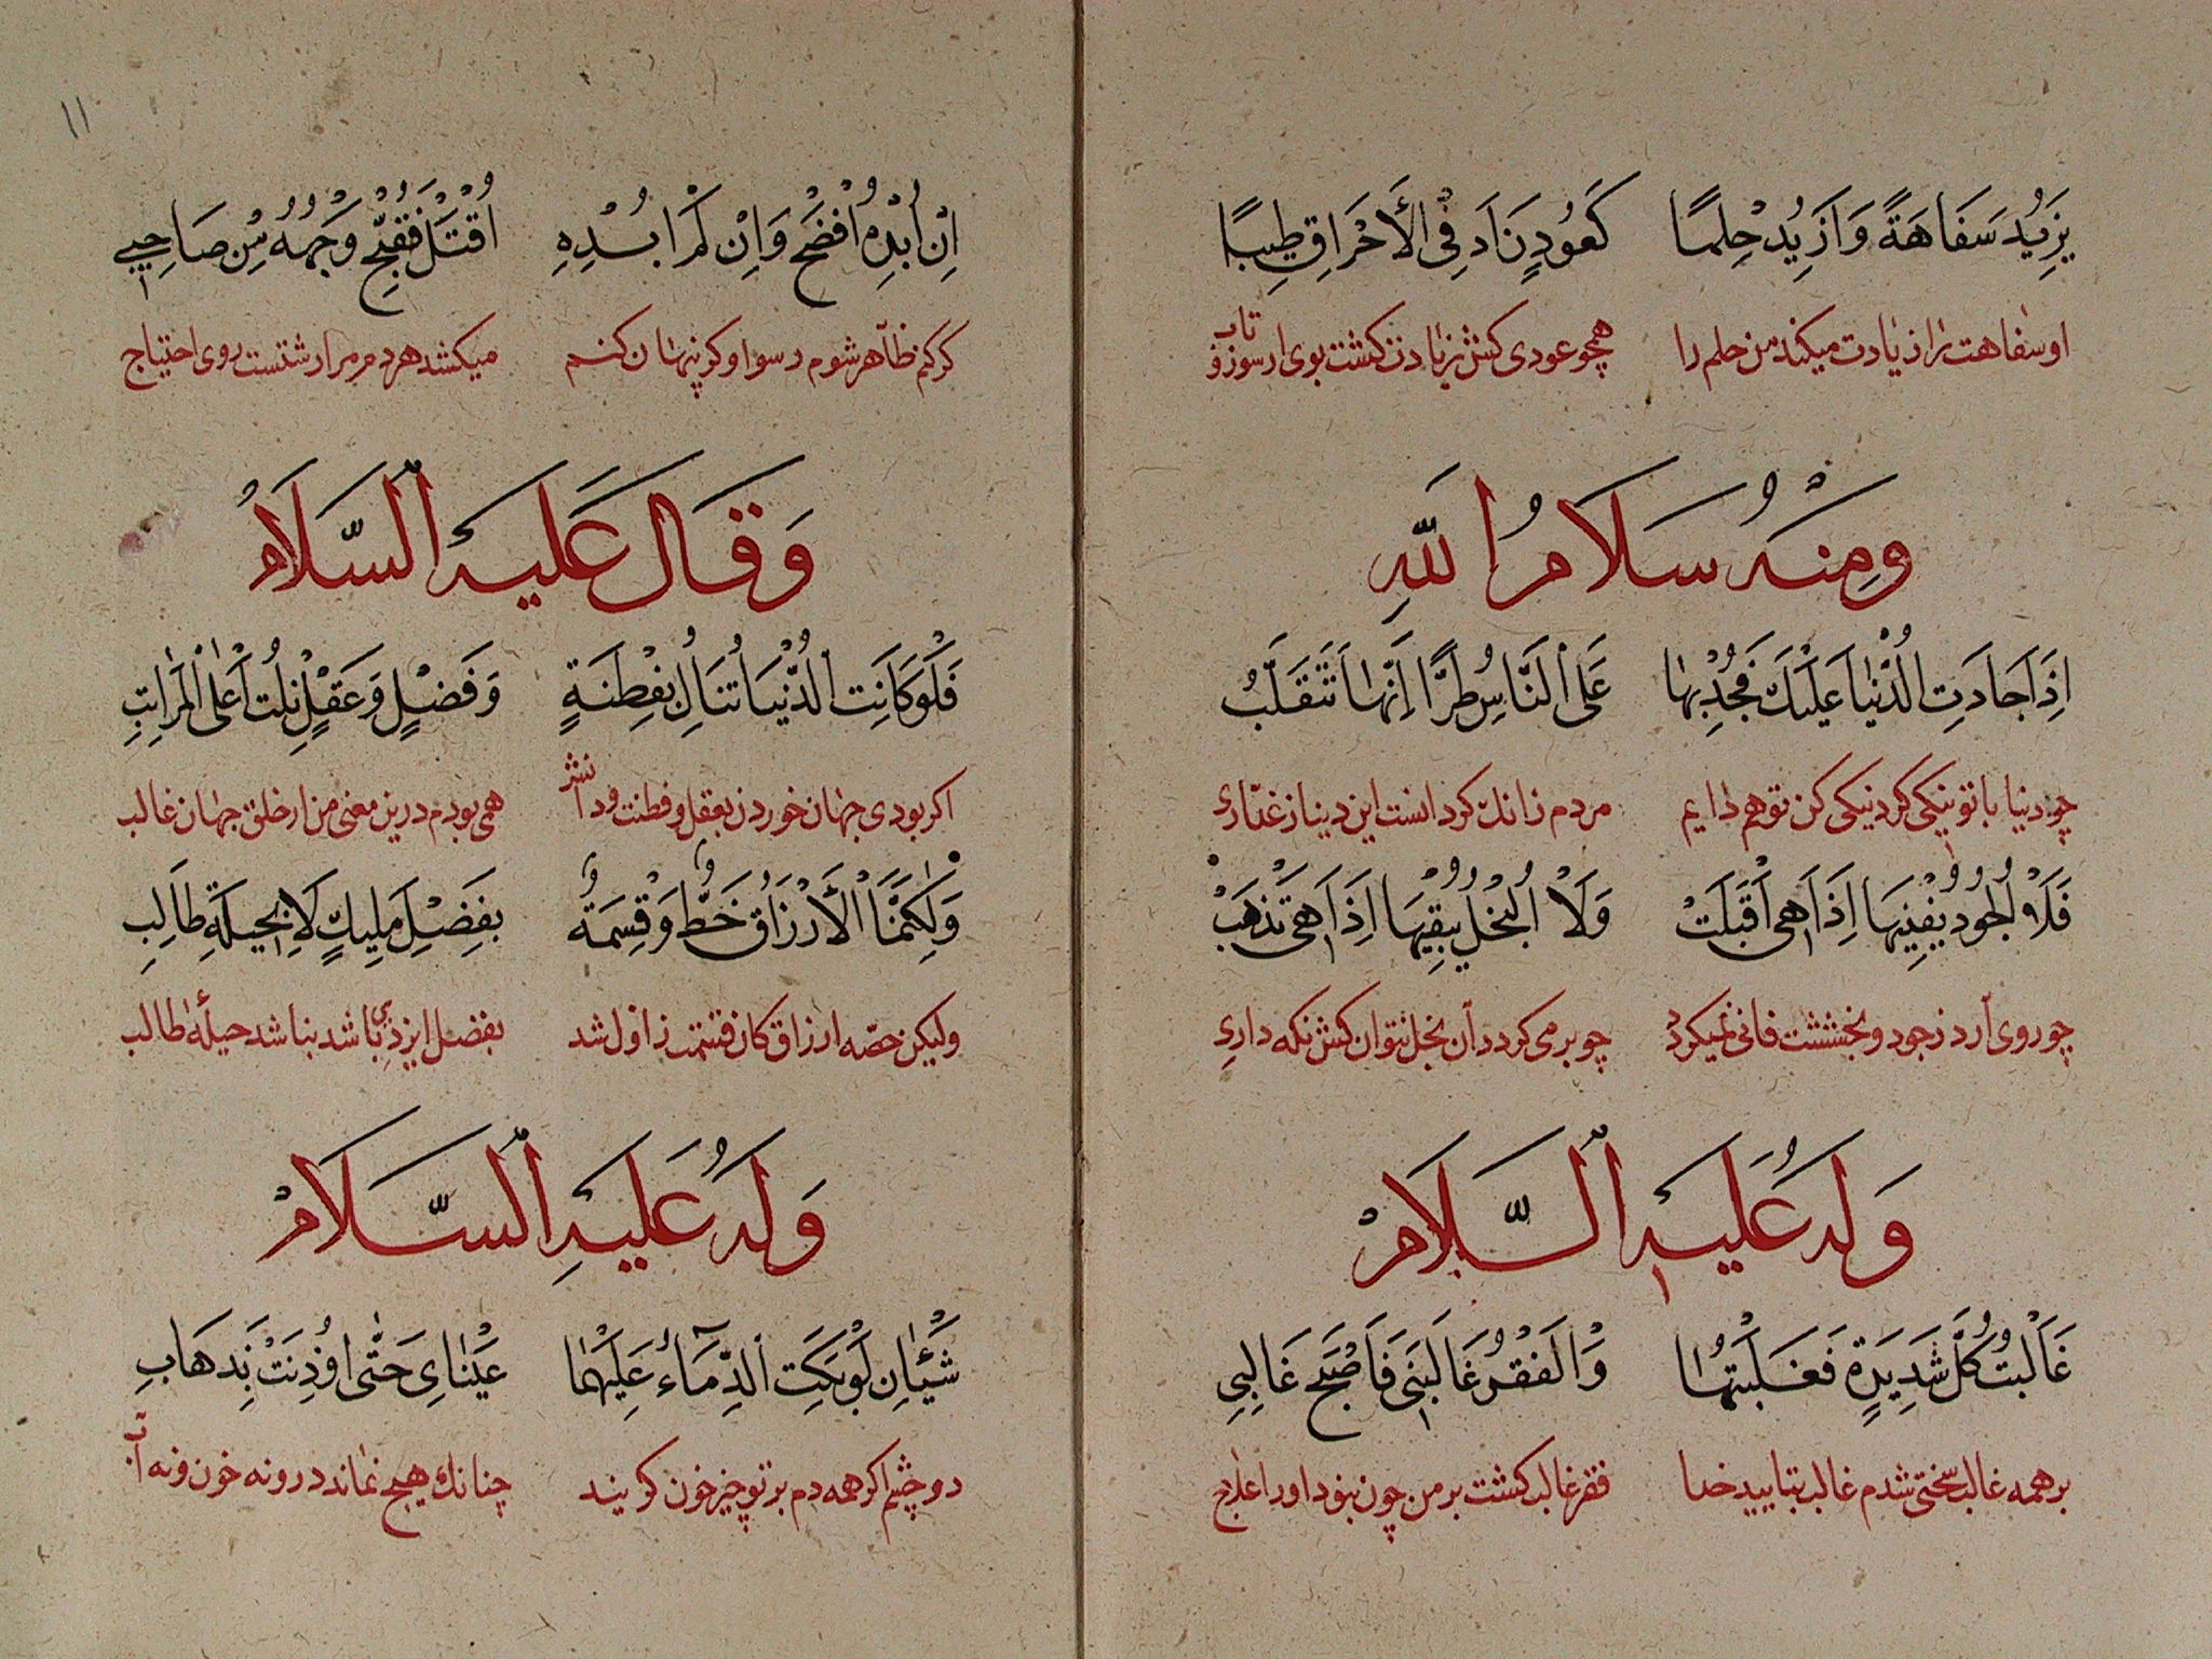 يَزِيُد سَفَاهَةً وَاَزِيُد حِلمًا كَعُودٍ زَادَ فِى الأَحْرَاقِ طِيبًا
او سفاهت را زیادت میکند من حلم را همچو عودی کش زیادت کشت بوی از سوز و تاب
وَمِنْهُ سَلَامُ اللّٰهِ
اِذَا جَادَتِ الدُّنْيا عَلَيْكَ فَجُدْ بِهَا عَلَى النَّاسِ طُرًّا اِنَّهَا تَتَقَلَّبُ
چو دنیا با تو نیکی کرد نیکی کن تو هم دایم مردم زانك کردانست این دنیا ز غداری
فَلَا الْجُودُ يُفْنِيهَا اِذَا هِى اَقْبَلَتْ وَلَا الْبُخْلُ يُبْقِيهَا اِذَا هِىَ تَذْهَبْ
چو روی آرد ز جود و بخششت فانی نمیکردد چو بر می کردد آن بخل نتوان کش نکه داری
وَلَهُ عَلَيهِ السَّلَامْ
غَالَبْتُ كُلَّ شَدِيَدةٍ فَغَلَبْتُهَا وَالْفَقْرُ غَالَبَنِى فَاَصْبَحَ غَالِبِي
بر همه غالب سختی شدم غالب بتایید خدا فقر غالب کشت بر من چون نبود او را علاج
١١
اِنْ اُبْدِهِ اُفْضَحْ وَاِنْ لَمْ اُبْدِهِ اُقْتَلْ فَقُبِّحَ وَجْهُهُ مِنْ صَاحِبِي
کر کنم ظاهر شوم رسوا و کر پنهان کنم میکشد هر دم مرا زشتست روی احتیاج
وَقَالَ عَلَيهِ السَّلَامُ
فَلَوْ كَانَتِ الدُّنْيَا تُنَالُ بِفِطْنَةٍ وَفَضْلٍ وَعَقْلٍ نِلْتُ أَعْلَى الْمَرَاتِبِ
اکر بودی جهان خوردن بعقل و فطنت و دانش همی بودم درین معنی من از خلق جهان غالب
وَلٰكِنَّمَا الْأَرْزَاقُ حَظٌّ وَقِسْمَةٌ بِفَضْلِ مَلِيكٍ لَا بِحِيلَةِ طَالِبِ
ولیکن حصّه ارزاق کان قسمت ز اول شد بفضل ایزدی باشد نباشد حیلهٔ طالب
وَلَهُ عَلَيهِ السَّلَامْ
شَيْئَانِ لَوْ بَكَتِ الدِّمَاءُ عَلَيْهِمَا عَيْنَاىَ حَتّٰى اُوذِنَتْ بِذَهَابِ
دو چشم اکر همه دم بر تو چیز خون کریند چنانك هیچ نماند درو نه خون و نه آب